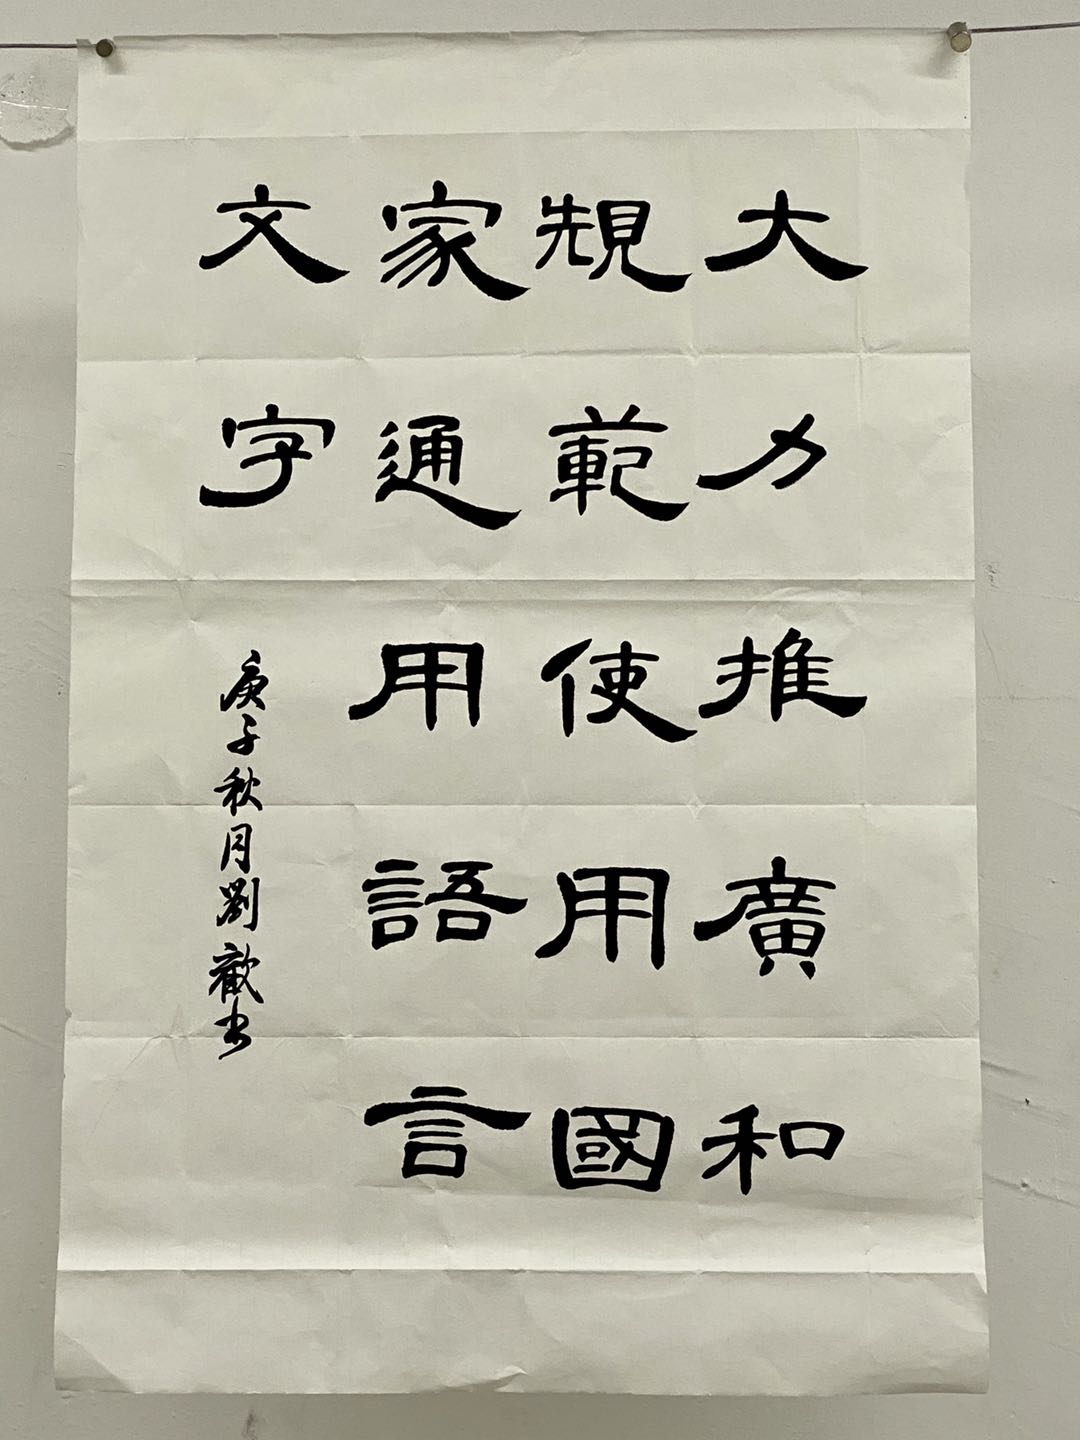 大力推廣和
規範使用國
家通用語言
文字
庚子秋月劉歡書